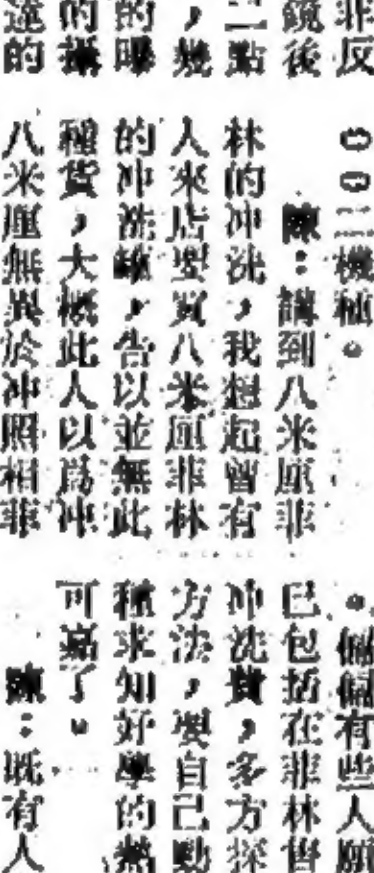 非反
鏡後
二點
，幾
的曝
的攝
達的
００二機種。
陳：講到八米厘菲
林的冲洗，我想起曾有
人來店要買八米厘菲林
的冲洗罐，告以並無此
種貨，大概此人以爲冲
八米厘無異於冲照相菲
。偏偏有些人願
已包括在菲林售
冲洗費，多方探
方法，要自己動
種求知好學的熱
可嘉了。
陳：既有人